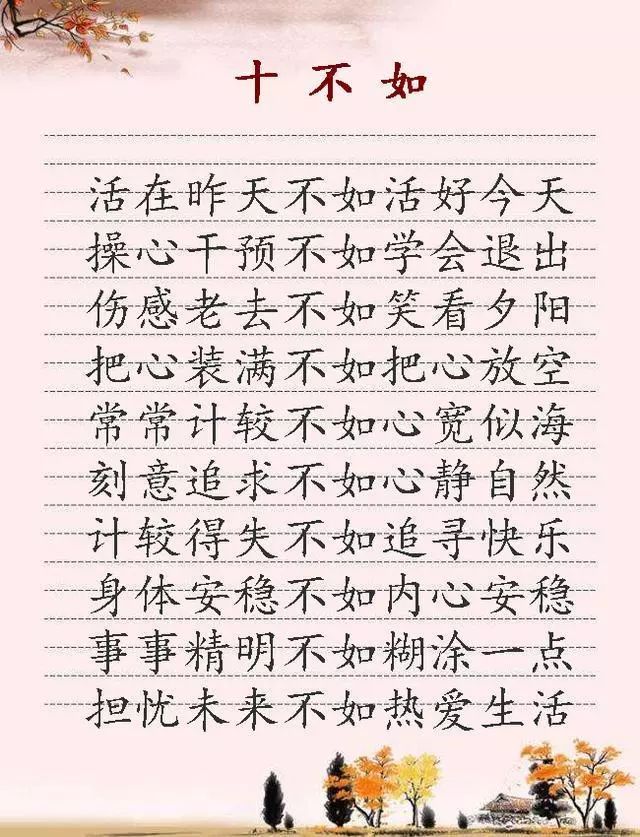 十不如
活在昨天不如活好今天
操心干预不如学会退出
伤感老去不如笑看夕阳
把心装满不如把心放空
常常计较不如心宽似海
刻意追求不如心静自然
计较得失不如追寻快乐
身体安稳不如内心安稳
事事精明不如糊涂一点
担忧未来不如热爱生活